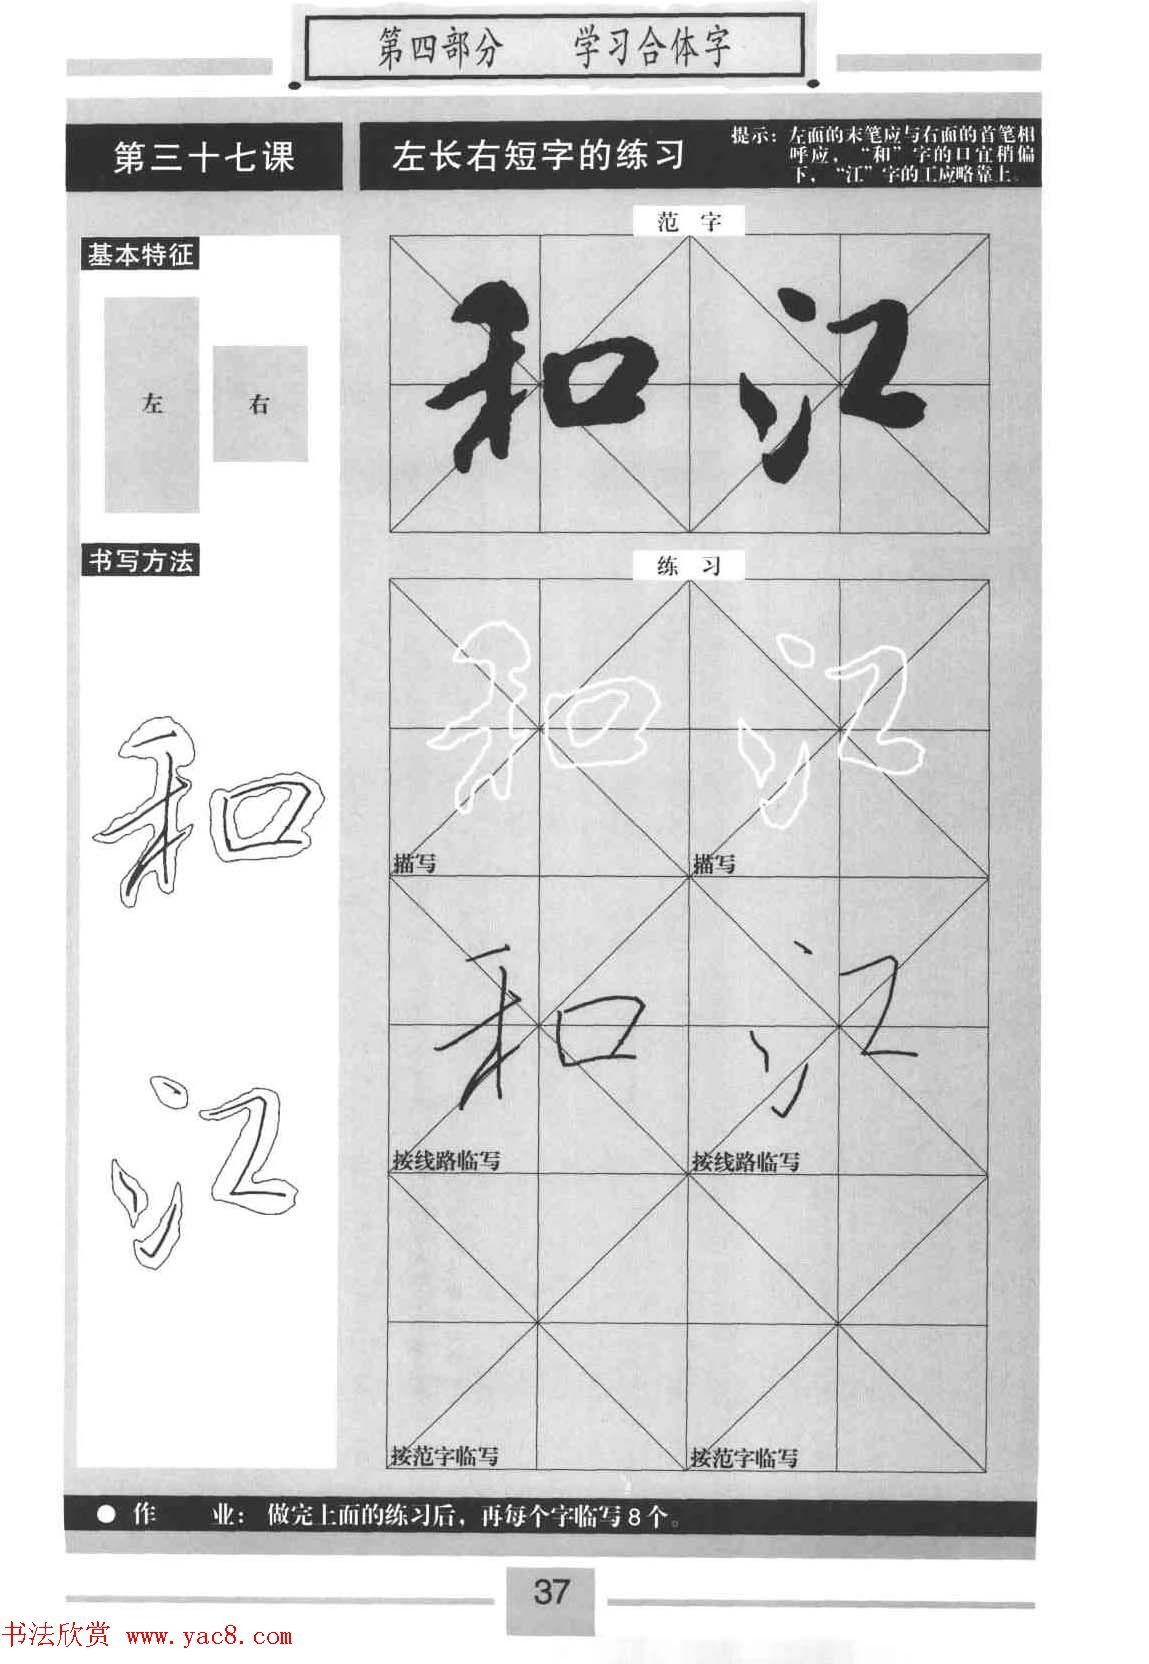 第四部分 学习合体字
第三十七课
左长右短字的练习
提示：左面的末笔应与右面的首笔相
呼应，“和”字的口宜稍偏
下，“江”字的工应略靠上。
基本特征
左
右
书写方法
和
江
范 字
和 江
练 习
和 江
描写 描写
和 江
按线路临写 按线路临写
按范字临写 按范字临写
● 作 业：做完上面的练习后，再每个字临写8个。
37
书法欣赏 www.yac8.com